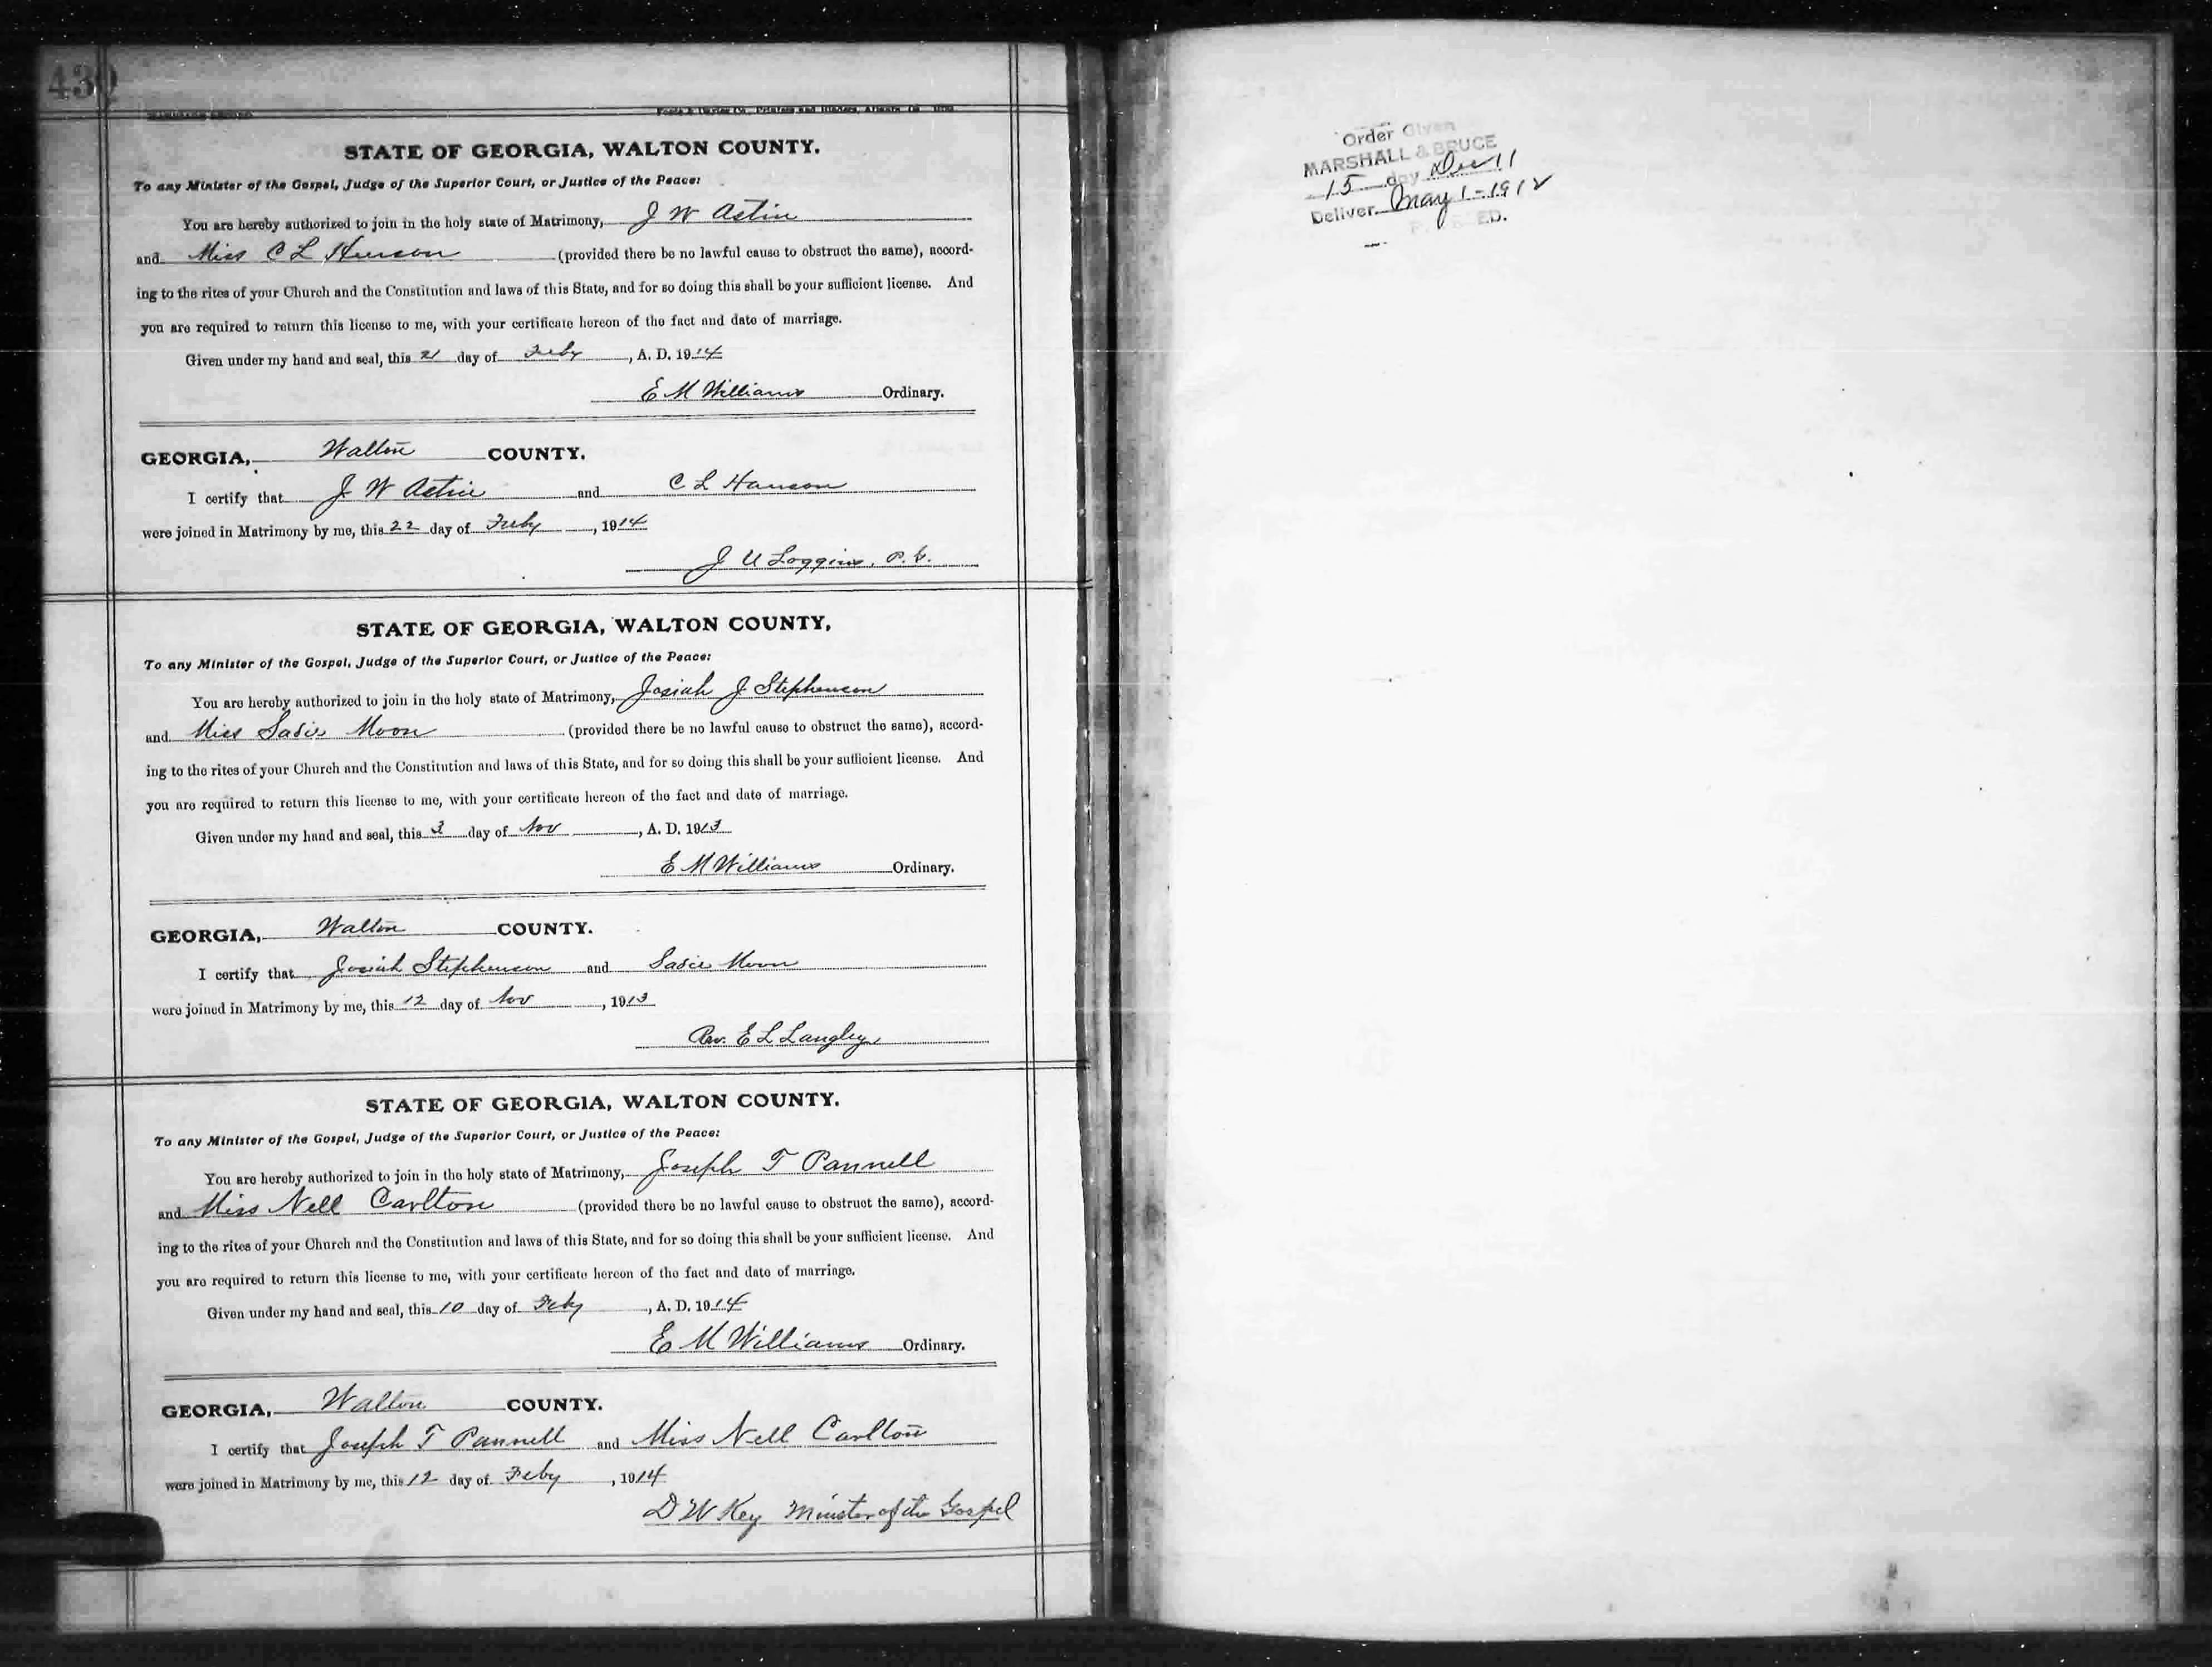 430
STATE OF GEORGIA, WALTON COUNTY.
To any Minister of the Gospel, Judge of the Superior Court, or Justice of the Peace:
You are hereby authorized to join in the holy state of Matrimony, J W Astin
and Miss C L (provided there be no lawful cause to obstruct the same), accord-
ing to the rites of your Church and the Constitution and laws of this State, and for so doing this shall be your sufficient license. And
you are required to return this license to me, with your certificate hereon of the fact and date of marriage.
Given under my hand and seal, this 21 day of Feby, A. D. 1914
E M Williams Ordinary.
GEORGIA, Walton COUNTY.
I certify that J W Astin and C L Hanson
were joined in Matrimony by me, this 22 day of Feby, 1914
J U Loggins,
STATE OF GEORGIA, WALTON COUNTY,
To any Minister of the Gospel, Judge of the Superior Court, or Justice of the Peace:
You are hereby authorized to join in the holy state of Matrimony, Josiah J Stephenson
and Miss Sadie Moon (provided there be no lawful cause to obstruct the same), accord-
ing to the rites of your Church and the Constitution and laws of this State, and for so doing this shall be your sufficient license. And
you are required to return this license to me, with your certificate hereon of the fact and date of marriage.
Given under my hand and seal, this 3 day of Nov, A. D. 1913
E M Williams Ordinary.
GEORGIA, Walton COUNTY.
I certify that Josiah Stephenson and Sadie Moon
were joined in Matrimony by me, this 12 day of Nov, 1913
Rev. E L Langley
STATE OF GEORGIA, WALTON COUNTY.
To any Minister of the Gospel, Judge of the Superior Court, or Justice of the Peace:
You are hereby authorized to join in the holy state of Matrimony, Joseph T Pannell
and Miss Nell Carlton (provided there be no lawful cause to obstruct the same), accord-
ing to the rites of your Church and the Constitution and laws of this State, and for so doing this shall be your sufficient license. And
you are required to return this license to me, with your certificate hereon of the fact and date of marriage.
Given under my hand and seal, this 10 day of Feby, A. D. 1914
E M Williams Ordinary.
GEORGIA, Walton COUNTY.
I certify that Joseph T Pannell and Miss Nell Carlton
were joined in Matrimony by me, this 12 day of Feby, 1914
D W Key Minister of the Gospel
Order Given
MARSHALL & BRUCE
15 day Dec 11
Deliver May 1-1912